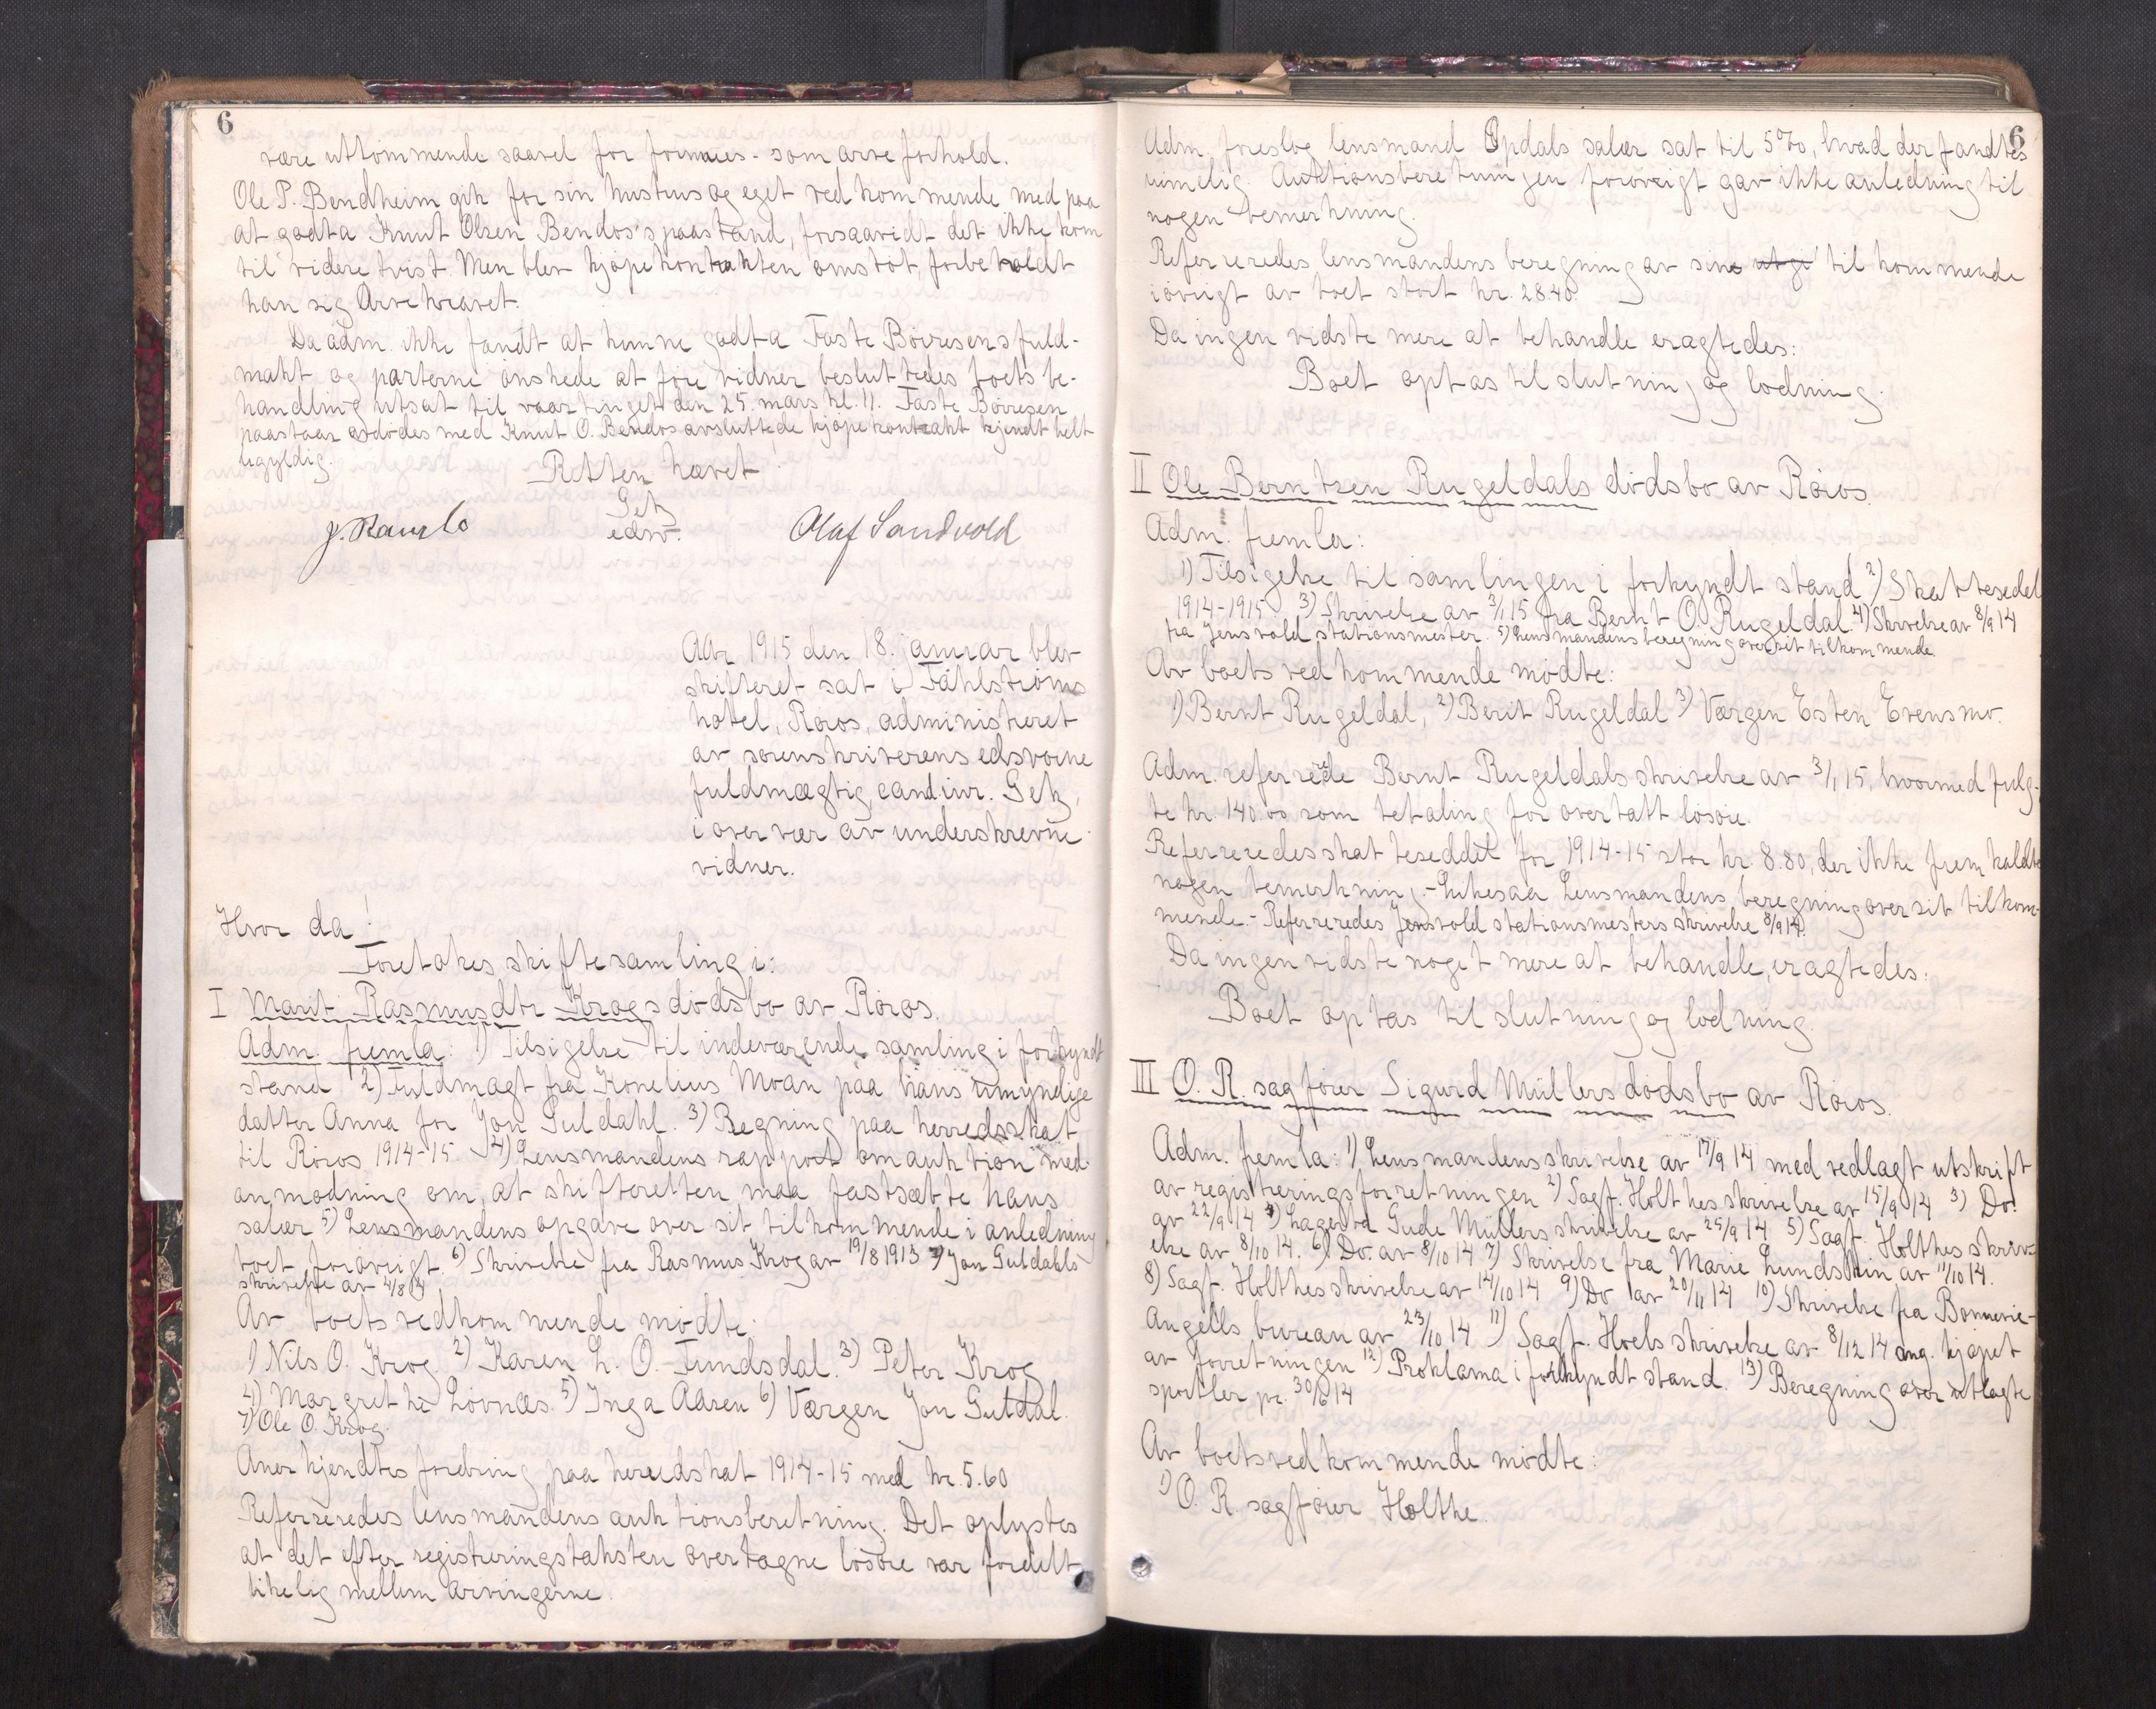 6
være uttømmende saavel for formues- som arve forhold.
Ole P. Bendheim gik for sin hustrus og eget vedkommende med paa
at godta Knut Olsen Bendos's paastand, forsaavidt det ikke kom
til videre tvist. Men blev kjøpekontrakten omstøt, forbeholdt
han sig Arvekravet.
Da adm. ikke fandt at kunne godta Faste Børresens fuld-
makt og parterne ønskede at føre vidner besluttedes boets be-
handling utsat til vaartinget den 25. mars kl. 11. Faste Børresen
paastaar avdødes med Knut O. Bendos avsluttede kjøpekontrakt kjendt helt
ugyldig.
Retten hævet!
Getz
edsv.
J. Ramlo
Olaf Sandvold
Aar 1915 den 18. januar blev
skifteret sat i Fahlstrøms
hotel, Røros, administreret
av sorenskriverens edsvorne
fuldmægtig, cand. iur. Getz,
i overvær av underskrevne
vidner.
Hvor da!
Foretokes skiftesamling i:
I Marit Rasmusdtr Krogs dødsbo av Røros.
Adm. fremla: 1) Tilsigelse til indeværende samling i forkyndt
stand 2) Fuldmagt fra Kornelius Moan paa hans umyndige
datter Anna for Jon Guldahl. 3) Regning paa herredsskat
til Røros 1914-15 4) Lensmandens rapport om auktion med
anmodning om, at skifteretten maa fastsætte hans
salær 5) Lensmandens opgave over sit tilkommende i anledning
boet forøvrigt. 6) Skrivelse fra Rasmus Krog av 19/8 1913 7) Jon Guldahls
skrivelse av 4/8 14
Av boets vedkommende møtte:
1) Nils O. Krog 2) Karen L. O. Tundsdal. 3) Peter Krog
4) Margrethe Løvnæs. 5) Inga Aasen 6) Værgen Jon Guldal.
7) Ole O. Krog.
Anerkjendtes fordring paa herredskat 1914-15 med kr. 5.60
Refereredes lensmandens auktionsberetning. Det oplystes
at det efter registreringstaksten overtagne løsøre var fordelt
likelig mellem arvingerne.
6
Adm. foreslog lensmand Opdals salær sat til 5%, hvad der fandtes
rimelig. Auktionsberetningen forøvrigt gav ikke anledning til
nogen bemerkning.
Refereredes lensmandens beregning av sine utgi til kommende
iøvrigt av boet stort kr. 28.40.
Da ingen vidste mere at behandle eragtedes:
Boet optas til slutning og lodning.
II Ole Berntzen Rugeldals dødsbo av Røros.
Adm. fremla:
1) Tilsigelse til samlingen i forkyndt stand 2) Skattesedel
1914-1915 3) Skrivelse av 3/1 15 fra Bernt O. Rugeldal 4) Skrivelse av 8/9 14
fra Jensvold stationsmester. 5) Lensmandens beregning over sit tilkommende
Av boets vedkommende møtte:
1) Bernt Rugeldal, 2) Berit Rugeldal 3) Værgen Esten Evensmo.
Adm. refererte Bernt Rugeldals skrivelse av 3/1 15, hvormed fulg-
te kr. 140.00 som betaling for overtatt løsøre.
Refereredes skatteseddel for 1914-15 stor kr. 8.80, der ikke fremkaldte
nogen bemerkning. - Likesaa Lensmandens beregning over sit tilkom-
mende. - Refereredes Jensvold stationsmesters skrivelse 8/9 14.
Da ingen vidste noget mere at behandle, eragtedes:
Boet optas til slutning og lodning.
III O. R. sagfører Sigurd Müllers dødsbo av Røros.
Adm. fremla: 1) Lensmandens skrivelse av 17/9 14 med vedlagt utskrift
av registreringsforretningen 2) Sagf. Holthes skrivelse av 15/9 14 3) Do.
av 22/9 14 4) Gude Müllers skrivelse av 25/9 14 5) Sagf. Holthes skriv-
else av 8/10 14. 6) Do. av 8/10 14 7) Skrivelse fra Marie Lundstein av 11/10 14.
8) Sagf. Holthes skrivelse av 14/10 14 9) Do av 20/11 14 10) Skrivelse fra Bonnevie-
Angells bureau av 23/10 14 11) Sagf. Hoels skrivelse av 8/12 14 ang. kjøpet
av forretningen 12) Proklama i forkyndt stand. 13) Beregning over utlagte
sportler pr. 30/6 14
Av boets vedkommende møtte:
1) O. R. sagfører Holthe.